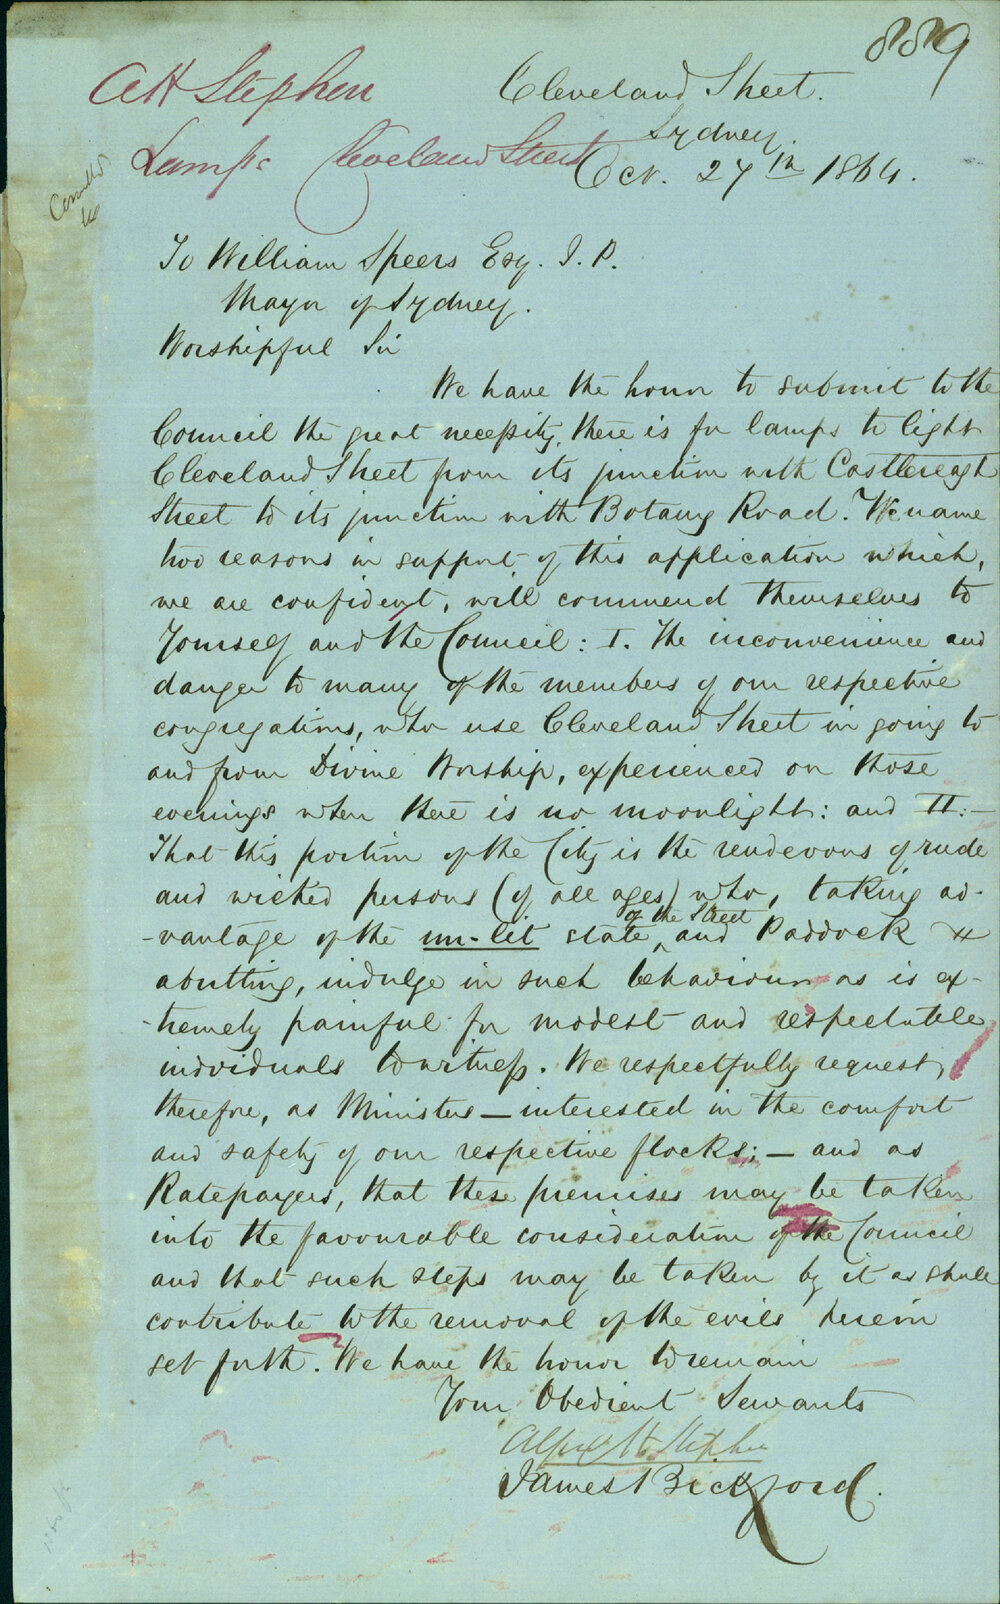 889
A H Stephen
Cleveland Street.
Sydney.
Lamps Cleveland Street
Oct. 27th 1864.
To William Speers Esq. J. P.
Mayor of Sydney.
Worshipful Sir
We have the honor to submit to the
Council the great necessity, there is for lamps to light
Cleveland Street from its junction with Castlereagh
Street to its junction with Botany Road. We name
two reasons in support of this application which,
we are confident, will commend themselves to
Yourself and the Council: I. The inconvenience and
danger to many of the members of our respective
congregations, who use Cleveland Street in going to
and from Divine Worship, experienced on those
evenings when there is no moonlight: and II:—
That this portion of the City is the rendevous of rude
and wicked persons (of all ages) who, taking ad-
-vantage of the un-lit state ^ of the Street and Paddock
abutting, indulge in such behaviour as is ex-
-tremely painful for modest and respectable
individuals to witness. We respectfully request,
therefore, as Ministers — interested in the comfort
and safety of our respective flocks; — and as
Ratepayers, that these premises may be taken
into the favourable consideration of the Council
and that such steps may be taken by it as shall
contribute to the removal of the evils herein
set forth. We have the honor to remain
Your Obedient Servants
Alfred H Stephen
James Bickford.